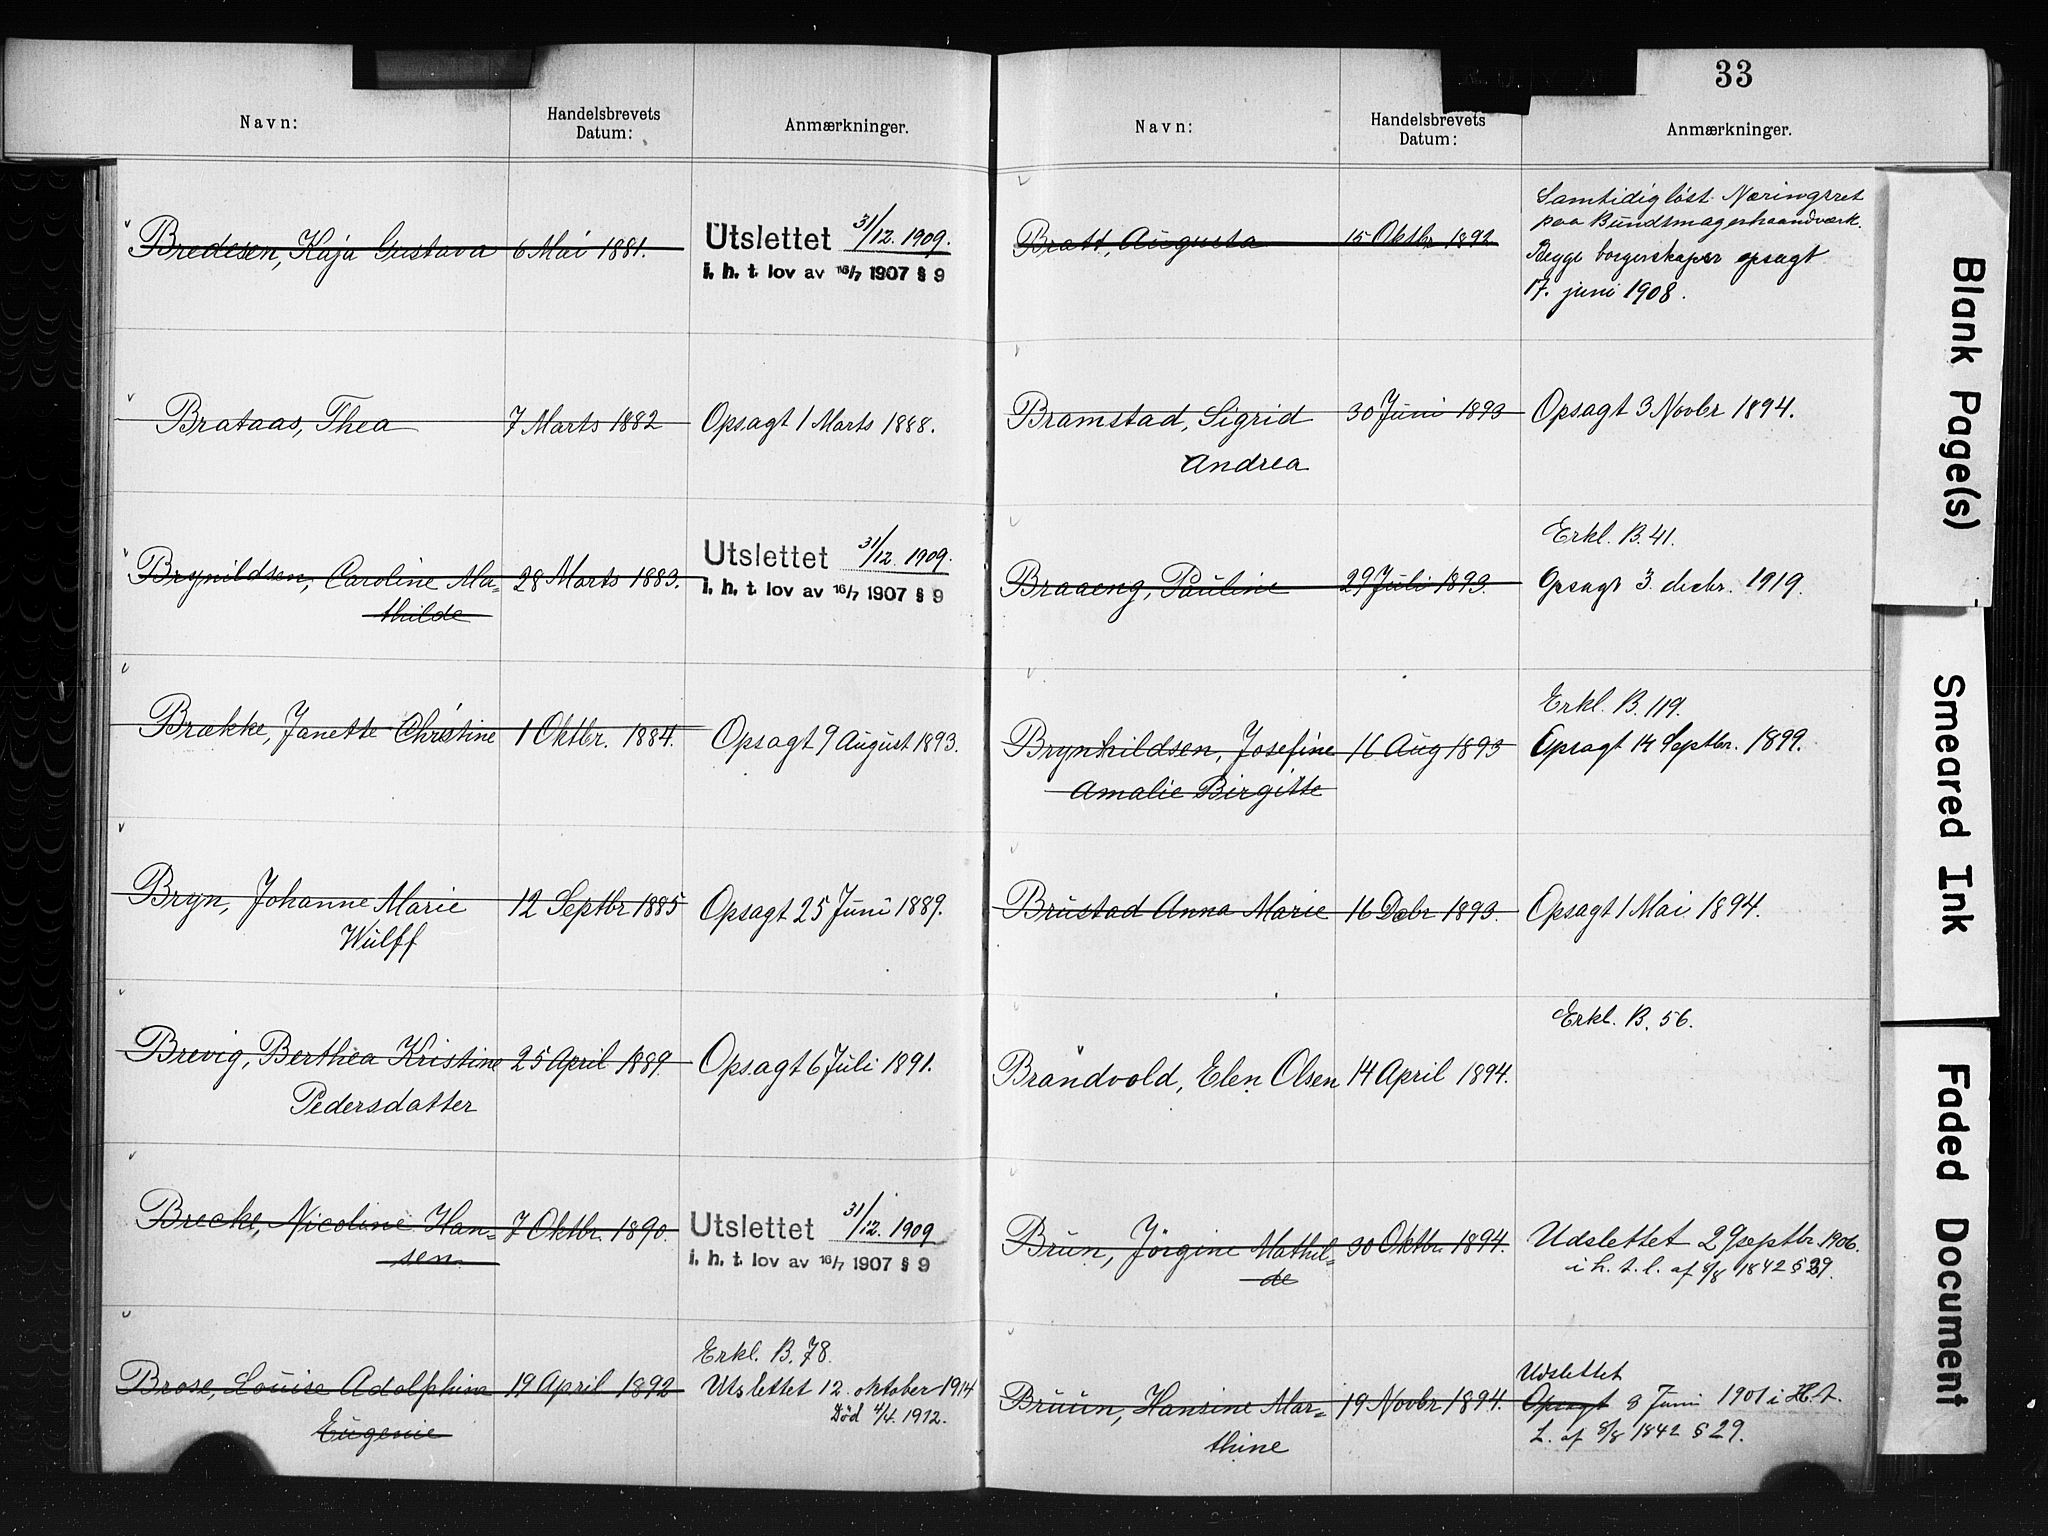 Navn:
Handelsbrevets
Datum:
Anmærkninger.
Bredesen, Kaja Gustava 6 Mai 1881.
Utslettet 31/12. 1909.
i. h. t. lov av 16/7 1907 § 9
Brataas, Thea 7 Marts 1882 Opsagt 1 Marts 1888.
Brynildsen, Caroline Ma- 28 Marts 1883.
thilde
Utslettet 31/12. 1909.
i. h. t. lov av 16/7 1907 § 9
Brække, Janette Christine 1 Oktbr. 1884. Opsagt 9 August 1893.
Bryn, Johanne Marie 12 Septbr 1885 Opsagt 25 Juni 1889.
Wulff
Brevig, Berthea Kristine 25 April 1889. Opsagt 6 Juli 1891.
Pedersdatter
Brecke, Nicoline Han- 7 Oktbr. 1890.
sen
Utslettet 31/12. 1909
i. h. t. lov av 16/7 1907 § 9
Erkl. B. 78.
Brose, Louise Adolphina 19 April 1892 Utslettet 12. oktober 1914
Død 4/4. 1912.
Eugenie
33
Navn:
Handelsbrevets
Datum:
Anmærkninger.
Bratt, Augusta 15 Oktbr 1892
Samtidig løst Næringsret
paa Bundtmagerhaandværk.
Begge borgerskaper opsagt
17. juni 1908.
Bramstad, Sigrid 30 Juni 1893 Opsagt 3 Novbr 1894.
Andrea
Erkl. B. 41.
Braaeng, Pauline 29 Juli 1893. Opsagt 3. decbr. 1919.
Erkl. B. 119.
Brynhildsen, Josefine 16 Aug 1893 Opsagt 14 Septbr. 1899.
Amalie Birgitte
Brustad Anna Marie 16 Decbr 1893. Opsagt 1 Mai 1894.
Erkl. B. 56.
Brandvold, Elen Olsen 14 April 1894.
Brun, Jörgine Mathil- 30 Oktbr. 1894. Udslettet 29 septbr. 1906.
de
i h. t. l. af 8/8 1842 § 29.
Udslettet
Bruun, Hansine Mar- 19 Novbr 1894. Opsagt 8 Juni 1901 i H. t.
thine
L. af 8/8 1842 § 29.
Blank Page(s)
Smeared Ink
Faded Document